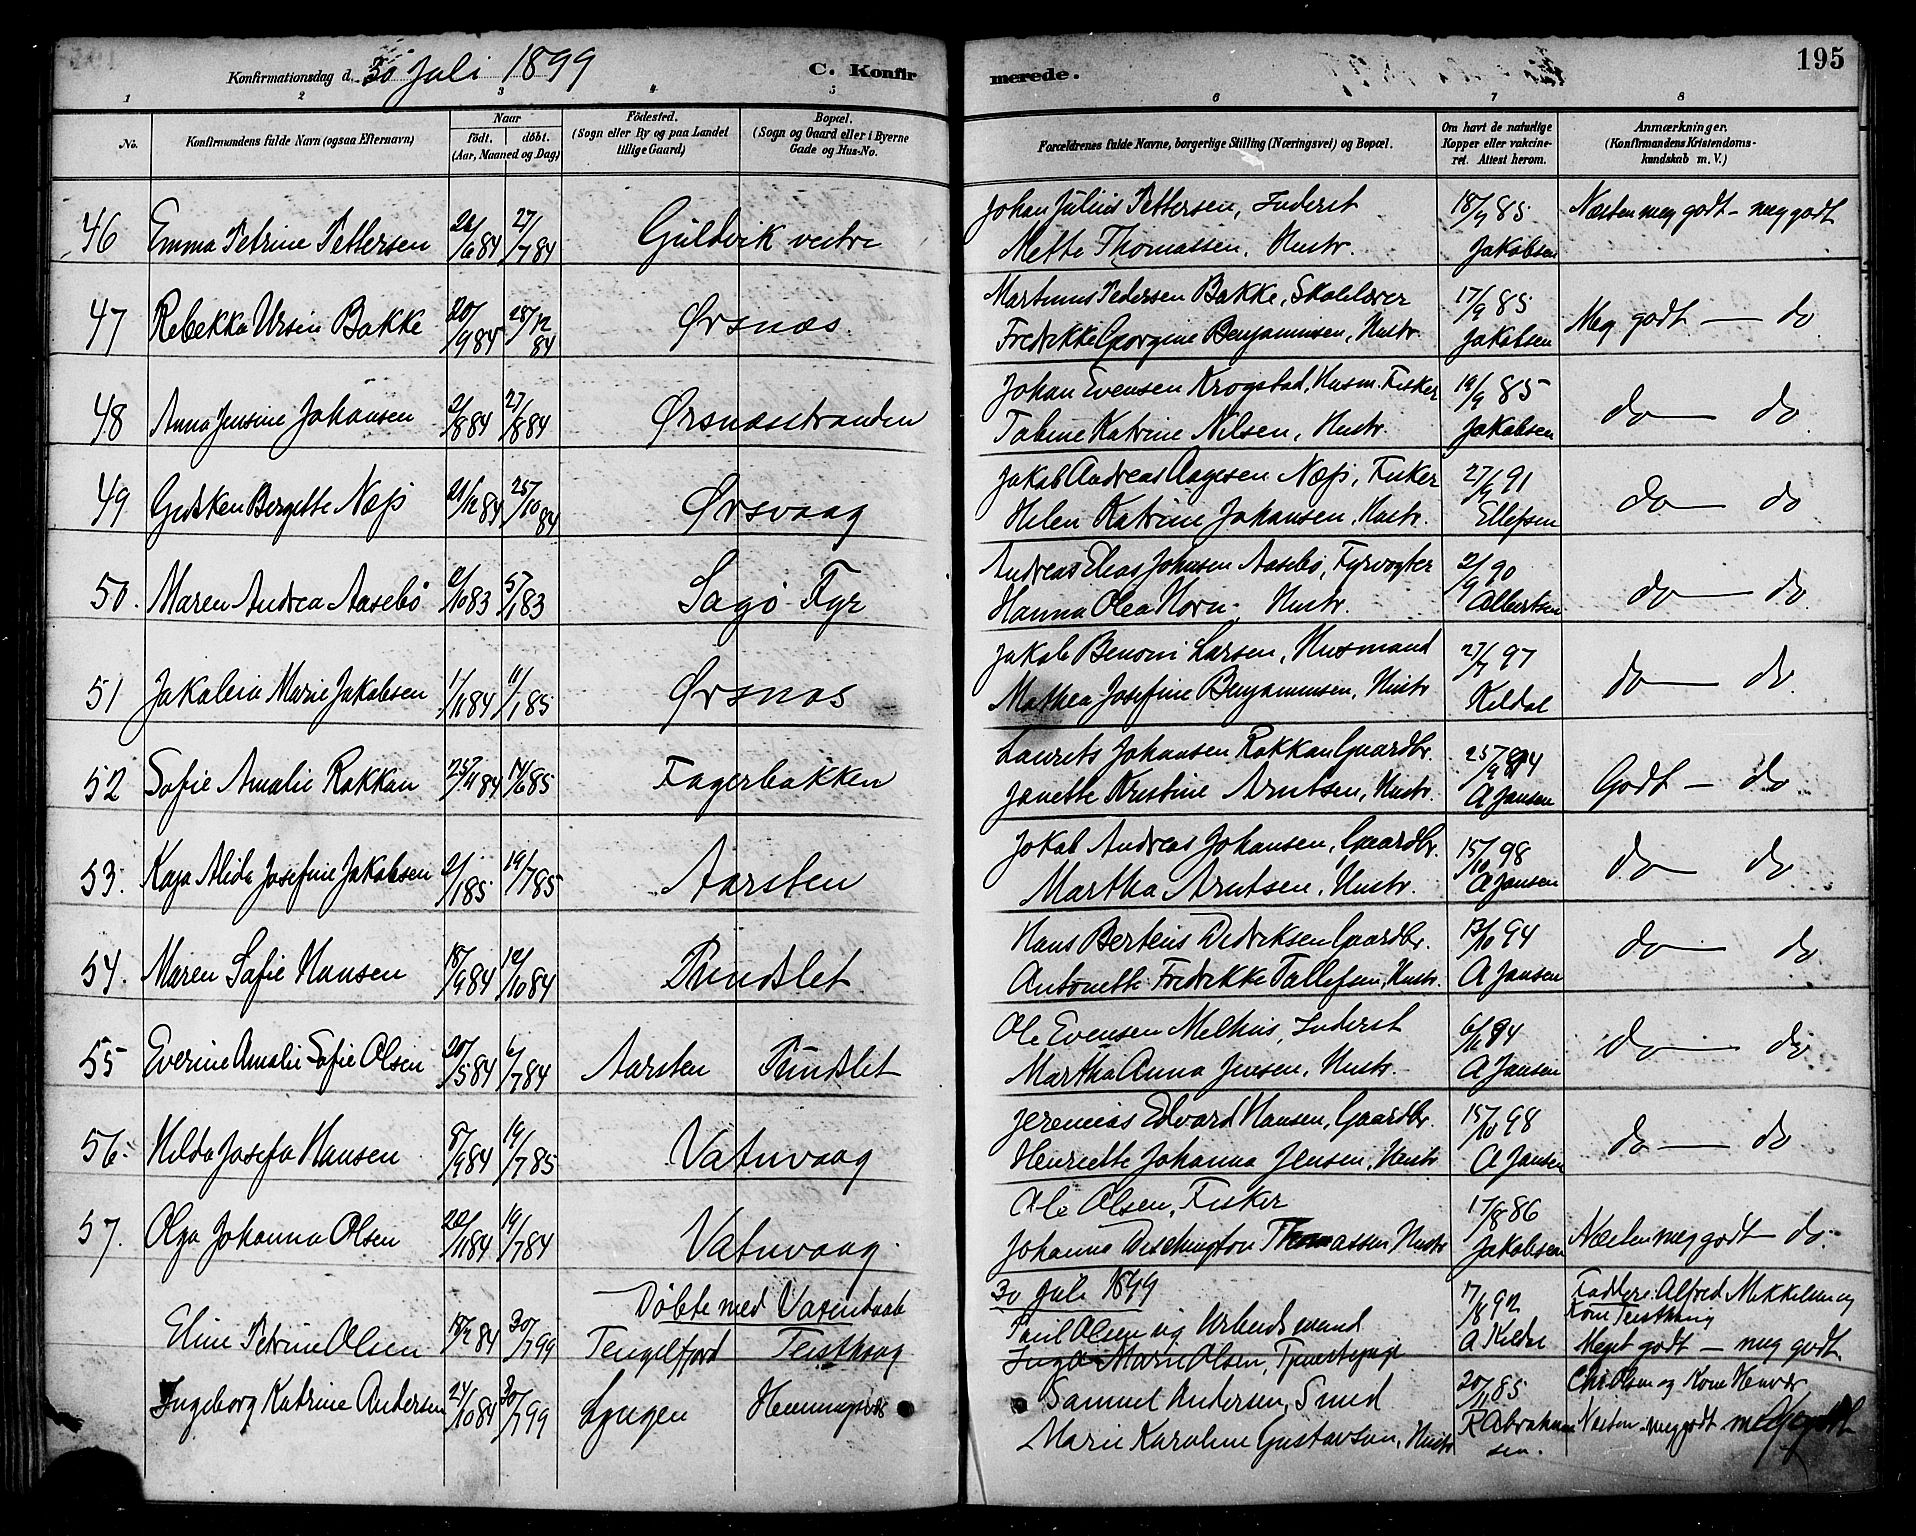 Konfirmationsdag d. 30 Juli 1899 C. Konfirmerede. 195
1 2 3 4 5 6 7 8
No. Konfirmandens fulde Navn (ogsaa Efternavn) Naar født. døbt. (Aar, Maaned og Dag) Fødested. (Sogn eller By og paa Landet tillige Gaard) Bopæl. (Sogn og Gaard eller i Byerne Gade og Hus-No. Forældrenes fulde Navne, borgerlige Stilling (Næringsvei) og Bopæl. Om havt de naturlige Kopper eller vakcineret. Attest herom. Anmærkninger. (Konfirmandens Kristendomskundskab m. V.)
Johan Julius Pettersen, Inderst 18/9 85 Næsten meg godt - meg godt
46 Emma Petrine Pettersen /6 84 27/7 84 Guldvik vestre Mette Thomassen, Hustr. Jakobsen
Martinus Pedersen Bakke, Skolelærer 17/9 85
47 Rebekka Ursin Bakke 20/9 84 28/12 84 Ørsnæs. Fredrikke Georgine Benjaminsen, Hustr. Jakobsen Meg godt — do
Johan Evensen Krogstad, Husm. Fisker 19/9 85
48 Anna Jensine Johansen 2/8 84 27/8 84 Ørsnæsstranden Tobine Katrine Nilsen, Hustr. Jakobsen do — do
Jakob Andreas Aagesen Næss, Fisker 27/9 91
49 Bergitte Næss 21/12 84 25/10 84 Ørsvaag Helen Katrine Johansen, Hustr. Ellefsen do — do
Andreas Elias Johnsen Aasebø, Fyrvogter 2/9 90
50. Maren Andrea Aasebø /10 83 5/1 83 Sagø Fyr Hanna Olea Horn. Hustr. Albertsen do — do
Jakob Benoni Larsen, Husmand 27/7 97
51 Jakobia Marie Jakobsen 1/11 84 11/1 85 Ørsnæs Mathea Josefine Benjaminsen, Hustr Keldal do — do
Laurits Johansen Rakkan Gaardbr. 25/9 94
52 Sofie Amalie Rakkan 25/11 84 14/6 85 Fagerbakken Janette Kristine Arntsen, Hustr. A Jansen Godt — do
Jakob Andreas Johansen, Gaardbr. 15/10 98
53. Kaja Alida Josefine Jakobsen 2/1 85 19/7 85 Aarsten Martha Arntsen, Hustr. A Jansen do — do
Hans Berteus Didriksen Gaardbr. 13/10 94
54. Maren Sofie Hansen 18/9 84 12/10 84 Pundslet Antonette Fredrikke Tollefsen, Hustr. A Jansen do — do
Ole Evensen Melhus, Inderst 6/11 94
55 Everine Amalie Sofie Olsen 20/5 84 6/7 84 Aarsten Pundslet Martha Anna Jensen, Hustr. A Jansen do — do
Jeremias Edvard Hansen, Gaardbr. 15/10 98
56. Hilda Josefa Hansen 8/9 84 19/7 85 Vatnvaag Henriette Johanna Jensen, Hustr A Jansen do — do
Ole Olsen, Fisker 17/8 86
57. Olga Johanna Olsen 22/11 84 19/7 84 Vatnvaag. Johanna Deschington Thomassen Hustr Jakobsen Næsten meg godt - do.
Døbte med Vasendaab 30 Juli 1899 7/8 92 Faddere: Alfred Mikkelsen og Kone
Poul Olsen og Arbeidsmand
Eline Petrine Olsen 18/2 84 30/7 99 Tengelfjord Inga Marie Olsen, Tjenestepige A Kildal Meget godt — meg godt
Samuel Andersen, Smed 20/11 85 Chr. Olsen og Kone
Ingeborg Katrine Andersen 24/10 84 30/7 99 Lyngen Henningsvær Marie Karoline Gustavson, Hustr R Abrahamsen. Næsten meg godt meg godt